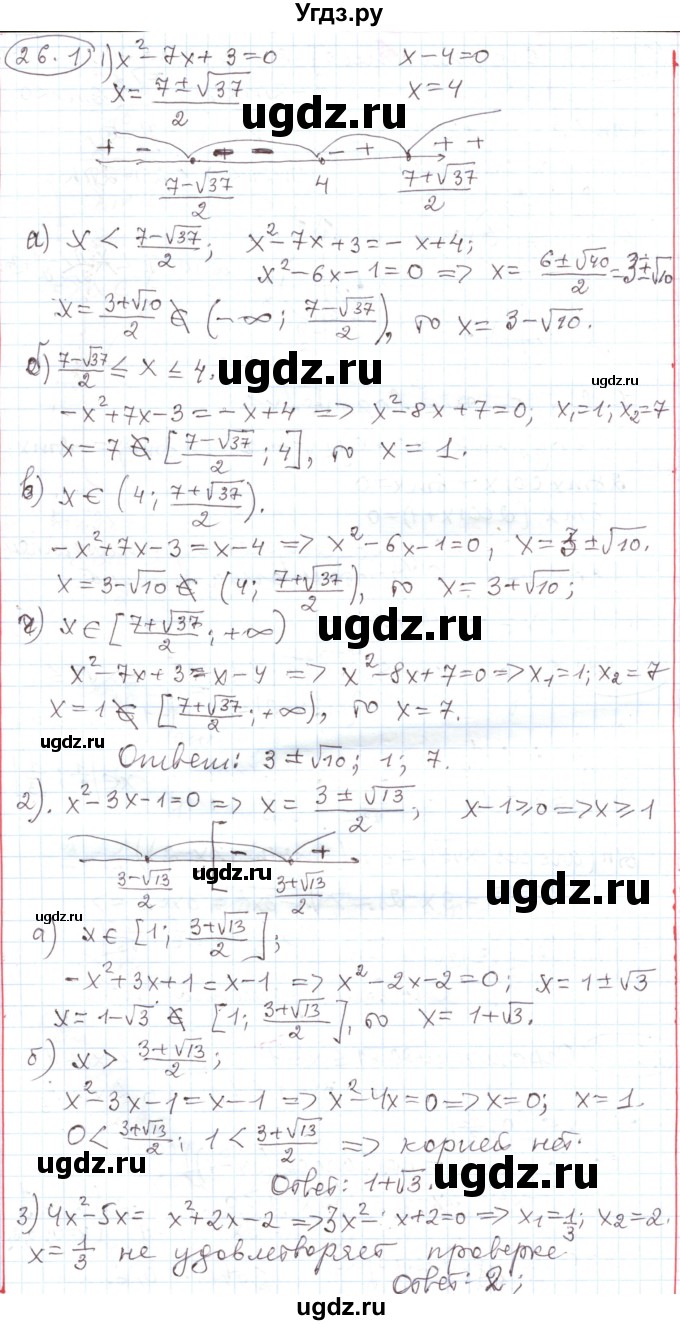 Угдз.ру
26.1 1) x² - 7x + 3 = 0   x - 4 = 0
x = (7 ± √37)/2   x = 4
ugdz.ru
+ - + - - + + +
(7 - √37)/2   4   (7 + √37)/2
а) x < (7 - √37)/2;   x² - 7x + 3 = - x + 4;
x² - 6x - 1 = 0 => x = (6 ± √40)/2 = 3 ± √10
x = (3 + √10)/2 ∉ (-∞; (7 - √37)/2), то x = 3 - √10.
ugdz.ru
б) (7 - √37)/2 ≤ x ≤ 4.
ugdz.ru
-x² + 7x - 3 = - x + 4 => x² - 8x + 7 = 0; x₁ = 1; x₂ = 7
x = 7 ∉ [(7 - √37)/2; 4], то x = 1.
в) x ∈ (4; (7 + √37)/2).
-x² + 7x - 3 = x - 4 => x² - 6x - 1 = 0, x = 3 ± √10.
x = 3 - √10 ∉ (4; (7 + √37)/2), то x = 3 + √10;
г) x ∈ [(7 + √37)/2; +∞)
ugdz.ru
x² - 7x + 3 = x - 4 => x² - 8x + 7 = 0 => x₁ = 1; x₂ = 7
x = 1 ∉ [(7 + √37)/2; +∞), то x = 7.
ugdz.ru
Ответ: 3 ± √10; 1; 7.
2). x² - 3x - 1 = 0 => x = (3 ± √13)/2;   x - 1 ≥ 0 => x ≥ 1
- +
ugdz.ru
(3 - √13)/2   (3 + √13)/2
ugdz.ru
а) x ∈ [1; (3 + √13)/2];
-x² + 3x + 1 = x - 1 => x² - 2x - 2 = 0; x = 1 ± √3
x = 1 - √3 ∉ [1; (3 + √13)/2], то x = 1 + √3.
б) x > (3 + √13)/2;
ugdz.ru
x² - 3x - 1 = x - 1 => x² - 4x = 0 => x = 0; x = 1.
0 < (3 + √13)/2; 1 < (3 + √13)/2 => корней нет.
ugdz.ru
Ответ: 1 + √3.
ugdz.ru
3) 4x² - 5x = x² + 2x - 2 => 3x² - x + 2 = 0 => x₁ = 1/3; x₂ = 2.
x = 1/3 не удовлетворяет проверке
Ответ: 2;
ugdz.ru